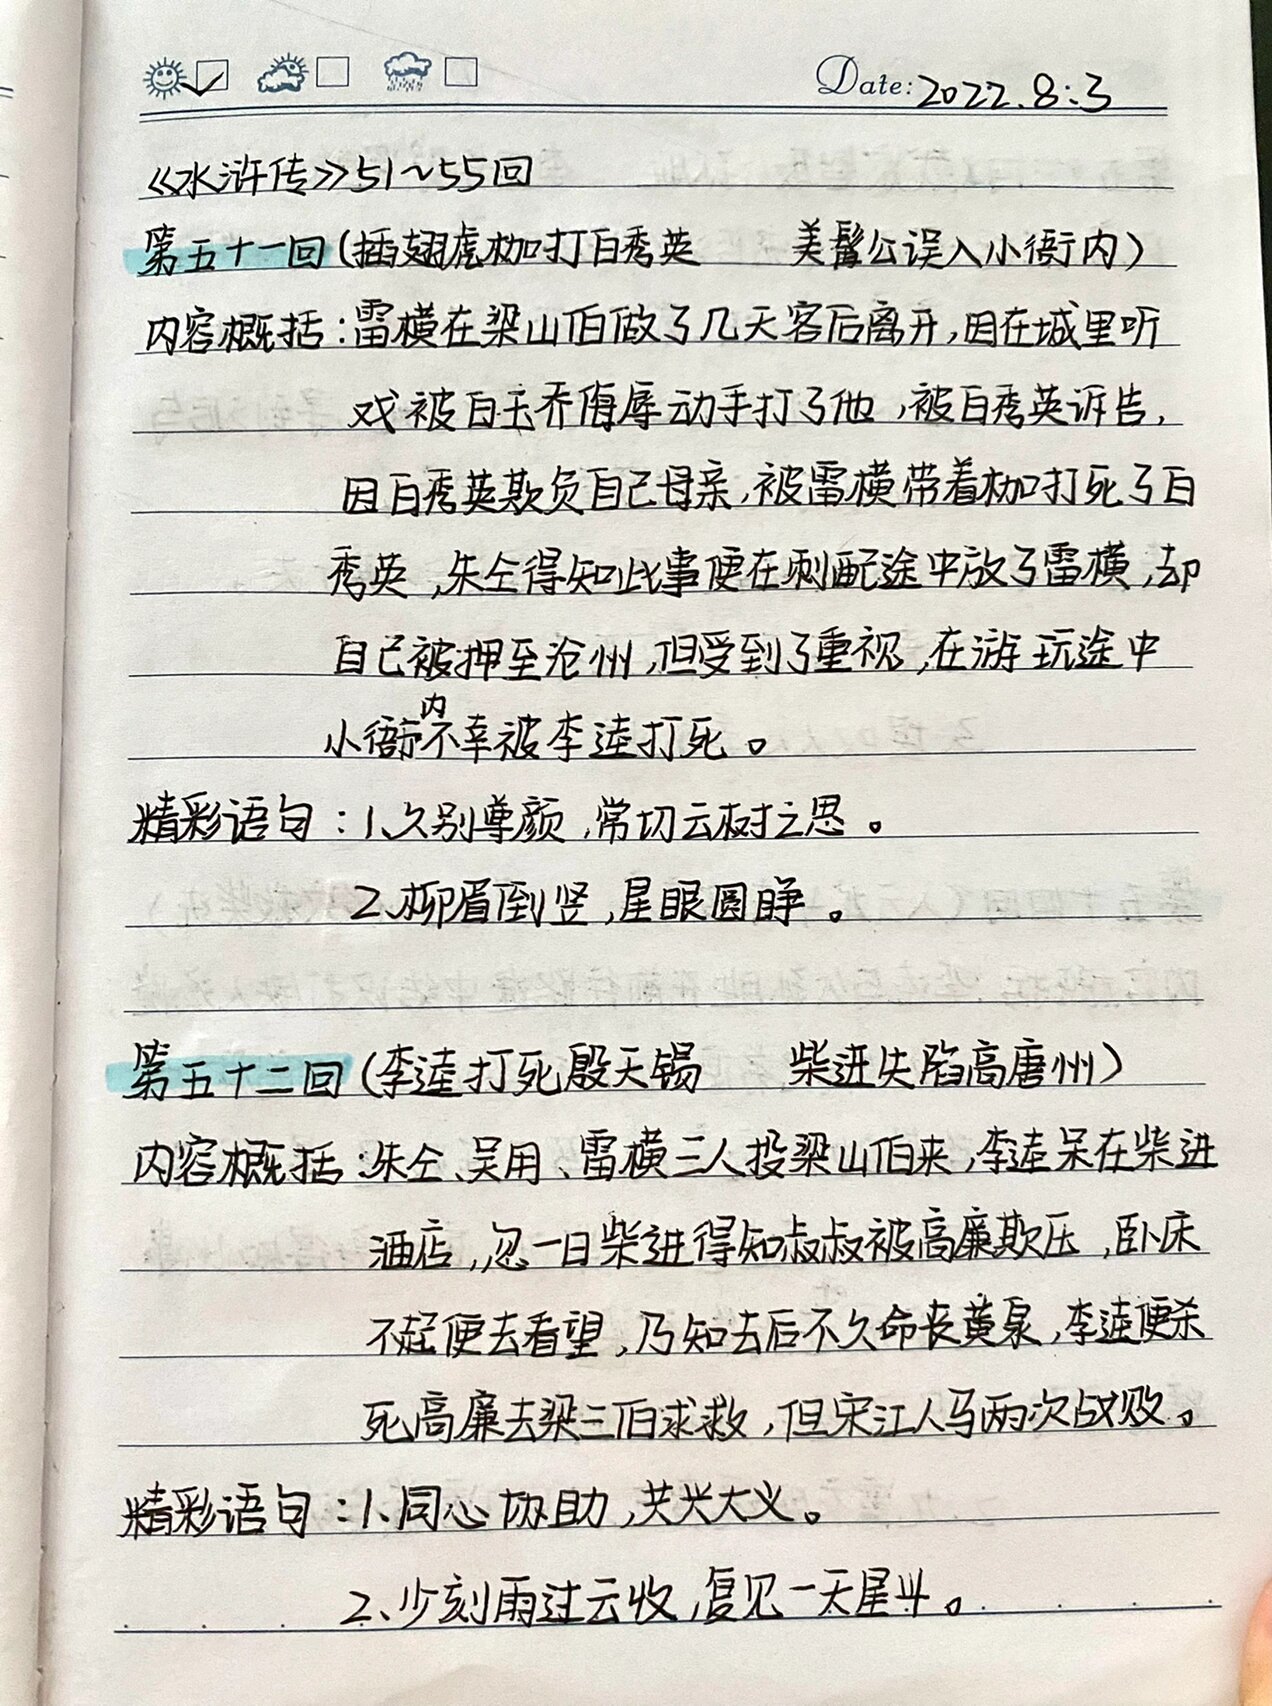 Date: 2022.8.3
《水浒传》51~55回
第五十一回(插翅虎枷打白秀英 美髯公误入小衙内)
内容概括:雷横在梁山伯做了几天客后离开,因在城里听
戏被白玉乔侮辱动手打了他,被白秀英诉告,
因白秀英欺负自己母亲,被雷横带着枷打死了白
秀英,朱仝得知此事便在刺配途中放了雷横,却
自己被押至沧州,但受到了重视,在游玩途中
小衙内不幸被李逵打死。
精彩语句:1、久别尊颜,常切云树之思。
2、柳眉倒竖,星眼圆睁。
第五十二回(李逵打死殷天锡 柴进失陷高唐州)
内容概括:朱仝、吴用、雷横三人投梁山伯来,李逵呆在柴进
酒店,忽一日柴进得知叔叔被高廉欺压,卧床
不起便去看望,乃知去后不久命丧黄泉,李逵便杀
死高廉去梁三伯求救,但宋江人马两次战败。
精彩语句:1、同心协助,共兴大义。
2、少刻雨过云收,复见一天星斗。